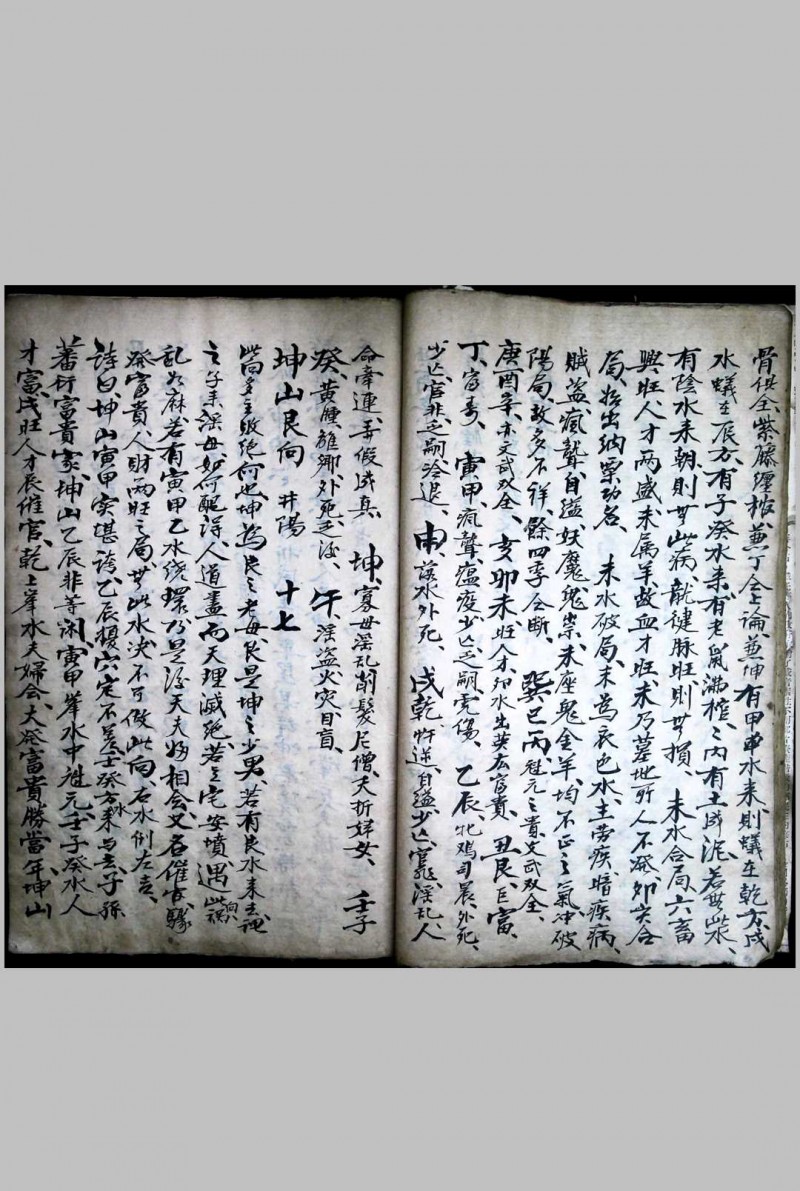 骨俱全、紫藤纏板、兼丁仝上論、兼坤有甲申水来則蟻在乾方、戌
水蟻在辰方、有子癸水来、有老鼠滿棺之内有土成泥、若無此水、
有陰水来朝、則無此病、龍健脉旺則無損 未水合局、六畜
興旺、人才两盛、未属羊故血才旺、未乃墓地所人不發、卯共合
局、控出納粟功名、 未水破局、未為衣色水、主帶疾、暗疾病、
賊盗、瘋聾、自縊、妖魔鬼祟、未座鬼金羊、均不正之氣、冲破
陽局、故多不祥、餘四季仝断、 巽巳丙、魁元之貴文武双全、
庚酉辛、亦文武双全、亥卯未旺人才、卯水出英宏富貴、丑艮、巨富、
丁、富寿、寅甲、瘋聾、瘟疫、少亡乏嗣、虎傷、乙辰、牝鸡司晨、外死、
少亡、官非、乏嗣、冷退、申、落水外死、戌乾、忤逆、自縊、少亡、寡、淫乱、人
命牽連、弄假成真、坤、寡母淫乱、削髮尼僧、夭折好女、壬子
癸、黄腫、離鄉外死、乏後、午、淫盗、火灾、目盲、
坤山艮向 井陽 十七
此局多主敗絶、何也、坤為艮之老母、艮是坤之少男、若有艮水来去、謂
之子来淫母、如何醒得、人道盡而天理滅絶、若立宅安墳、遇此禍
向
乱如麻、若有寅甲乙水繞環、乃是後天夫婦相会、又名催官、驟
發富貴、人財两旺之局、無此水決不可做此向、右水倒左吉、
詩曰、坤山寅甲实堪誇、乙辰穴定不差、壬癸方来与去、子孫
水
蕃衍富貴家、坤山乙辰非等閑、寅甲峯水中魁元、壬子癸水人
才富、戌旺人才辰催官、乾上峯水夫婦会、大發富貴勝當年、坤山